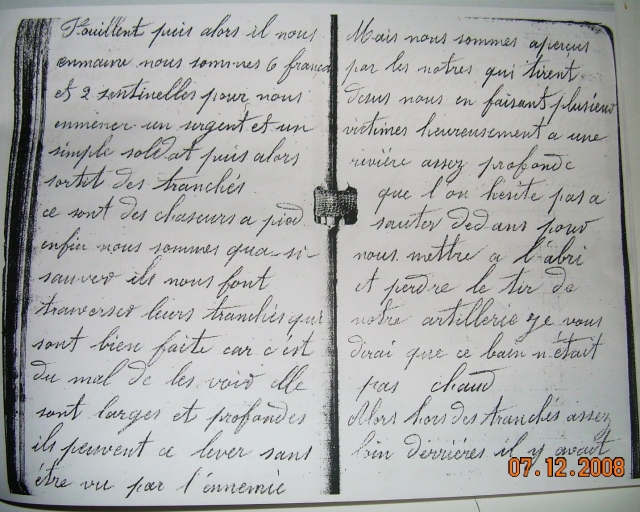 Fouillent puis alors il nous
enmaine nous sommes 6 francai
et 2 sentinelles pour nous
enmener un sergent et un
simple soldat puis alors
sortit des tranchés
ce sont des chaseurs a pied
enfin nous sommes qua-si-
sauver ils nous font
traverser leurs tranchés qui
sont bien faite car c'est
du mal de les voir elle
sont larges et profondes
ils peuvent ce lever sans
être vu par l'ennemie
Mais nous sommes aperçus
par les notres qui tirent
desus nous en faisant plusieur
victimes heureusement a une
rivière assez profonde
que l'on hesite pas a
sauter dedans pour
nous mettre a l'abri
et perdre le tir de
notre artillerie je vous
dirai que ce bain n'était
pas chaud
Alors hors des tranchés assez
loin derriéres il y avait
07.12.2008